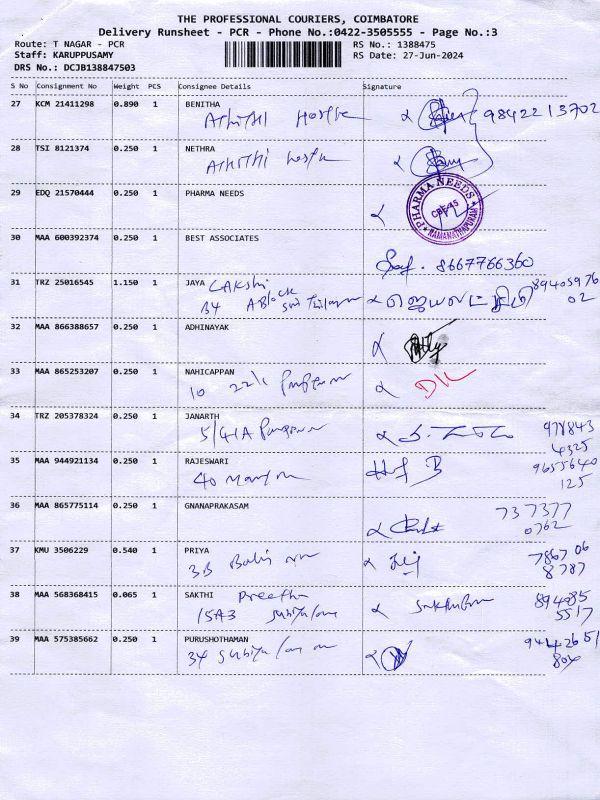 THE PROFESSIONAL COURIERS, COIMBATORE
Delivery Runsheet - PCR - Phone No.:0422-3505555 - Page No.:3
Route: T NAGAR - PCR RS No.: 1388475
Staff: KARUPPUSAMY RS Date: 27-Jun-2024
DRS No.: DCJB138847503
S No Consignment No Weight PCS Consignee Details Signature
27 KCM 21411298 0.890 1 BENITHA
Athithi 9842213702
28 TSI 8121374 0.250 1 NETHRA
Athithi
29 EDQ 21570444 0.250 1 PHARMA NEEDS
PHARMA NEEDS
CBE-45
RAMANATHAPURAM
30 MAA 600392374 0.250 1 BEST ASSOCIATES
8667766360
31 TRZ 25016545 1.150 1 JAYA Lakshi 89405976
B4 A Block 02
32 MAA 866388657 0.250 1 ADHINAYAK
33 MAA 865253207 0.250 1 NAHICAPPAN
10
34 TRZ 205378324 0.250 1 JANARTH 978843
5/41A 4325
35 MAA 944921134 0.250 1 RAJESWARI 9655640
40 125
36 MAA 865775114 0.250 1 GNANAPRAKASAM 737377
0762
37 KMU 3506229 0.540 1 PRIYA 786706
3B 8787
38 MAA 568368415 0.065 1 SAKTHI Preetha 894085
15A3 5517
39 MAA 575385662 0.250 1 PURUSHOTHAMAN 9442651
34 804